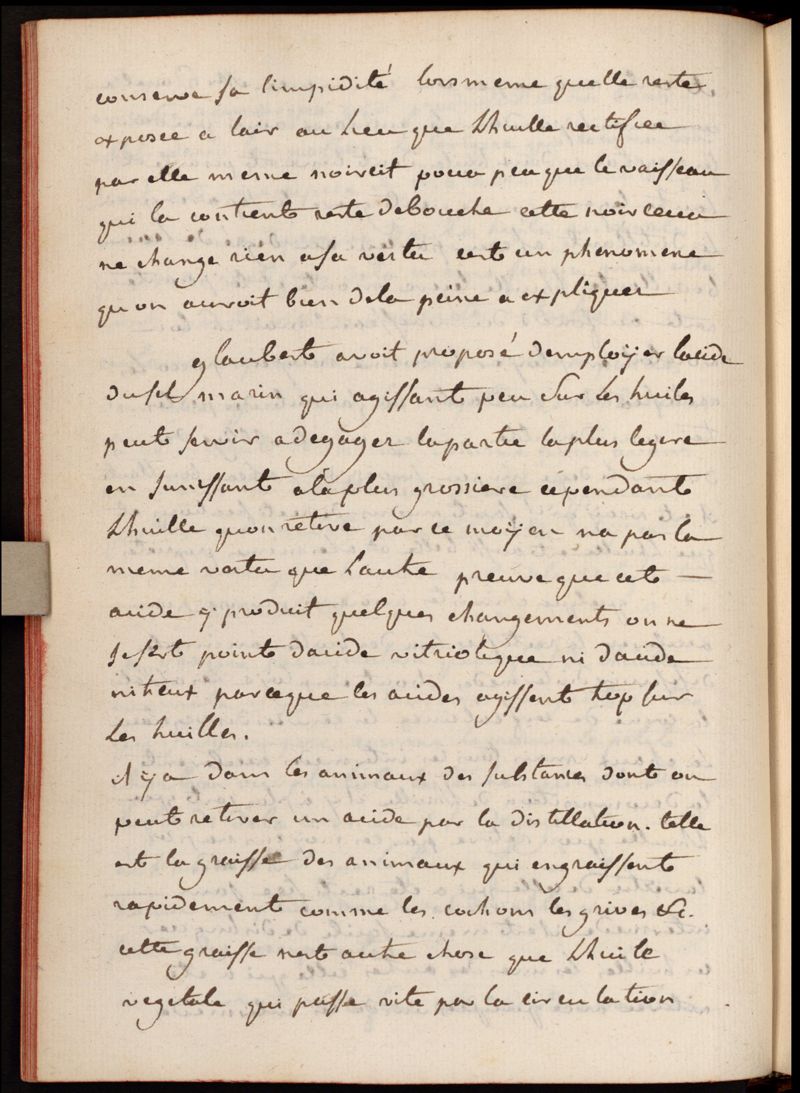 conserve sa limpidité lorsmeme quelle reste
exposee a lair au lieu que Lhuille rectifiee
par elle meme noircit pour peu que le vaisseau
qui la contient reste debouché cette noirceur
ne change rien a sa vertu cest un phenomene
quon auroit bien dela peine a expliquer
glaubert avoit proposé demploÿer lacide
du sel marin qui agissant peu Sur Les huiles
peut servir a degager lapartie laplus legere
en sunissant alaplus grossiere cependant
Lhuille quon retire par ce moÿen na pas la
meme vertu que Lautre preuve que cet –
acide y produit quelques changements on ne
se sert point dacide vitriolique ni dacide
nitreux parceque les acides agissent trop sur
Les huilles.
il y a dans les animaux des substances dont on
peut retirer un acide par la distillation. telle
est la graisse des animaux qui engraissent
rapidement comme les cochons les grives &c.
cette graisse nest autre chose que Lhuile
vegetale qui passe vite par la circulation